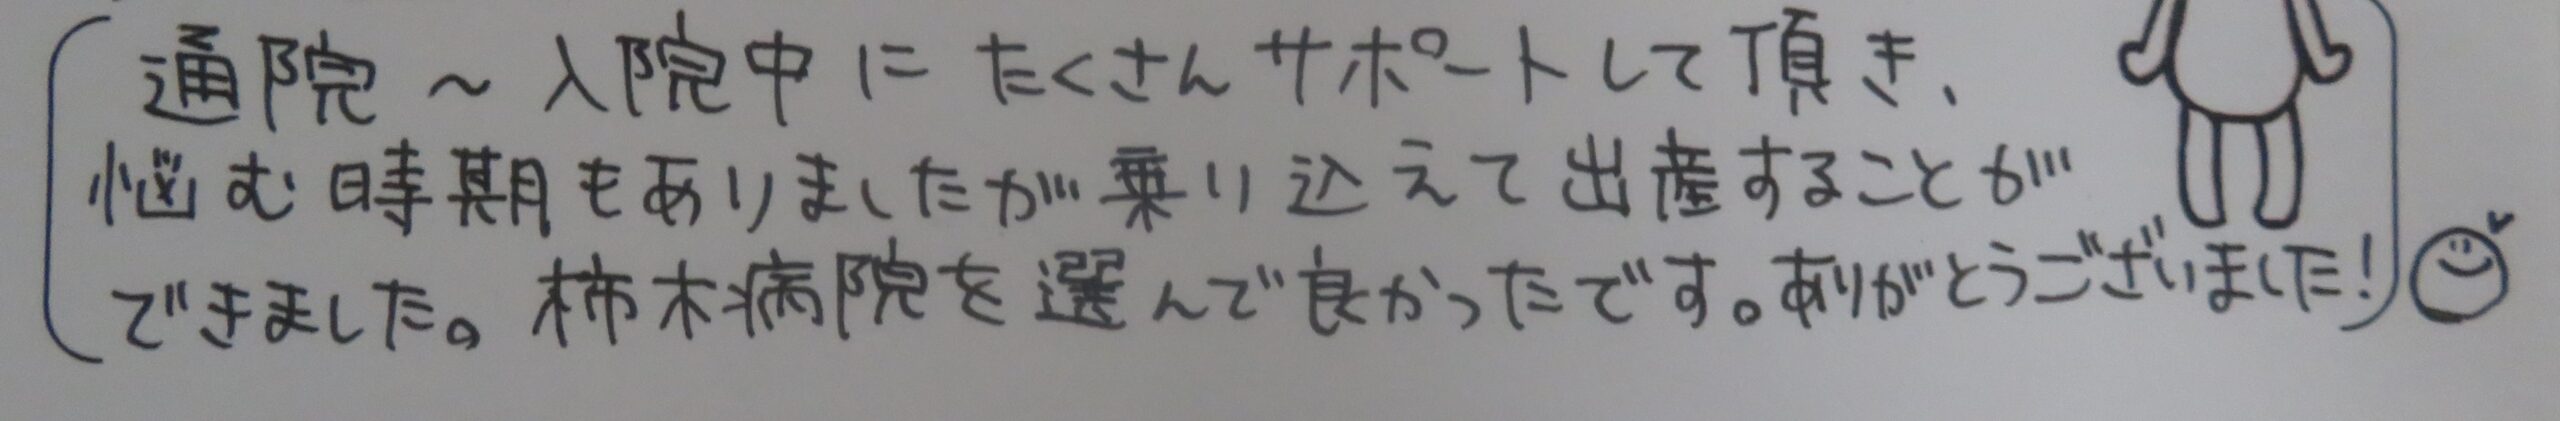 通院～入院中にたくさんサポートして頂き、
悩む時期もありましたが乗り込えて出産することが
できました。柿木病院を選んで良かったです。ありがとうございました!